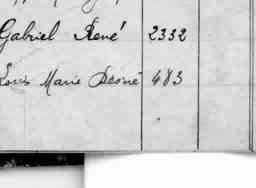 Gabriel René 2332
Louis Marie Désiré 483